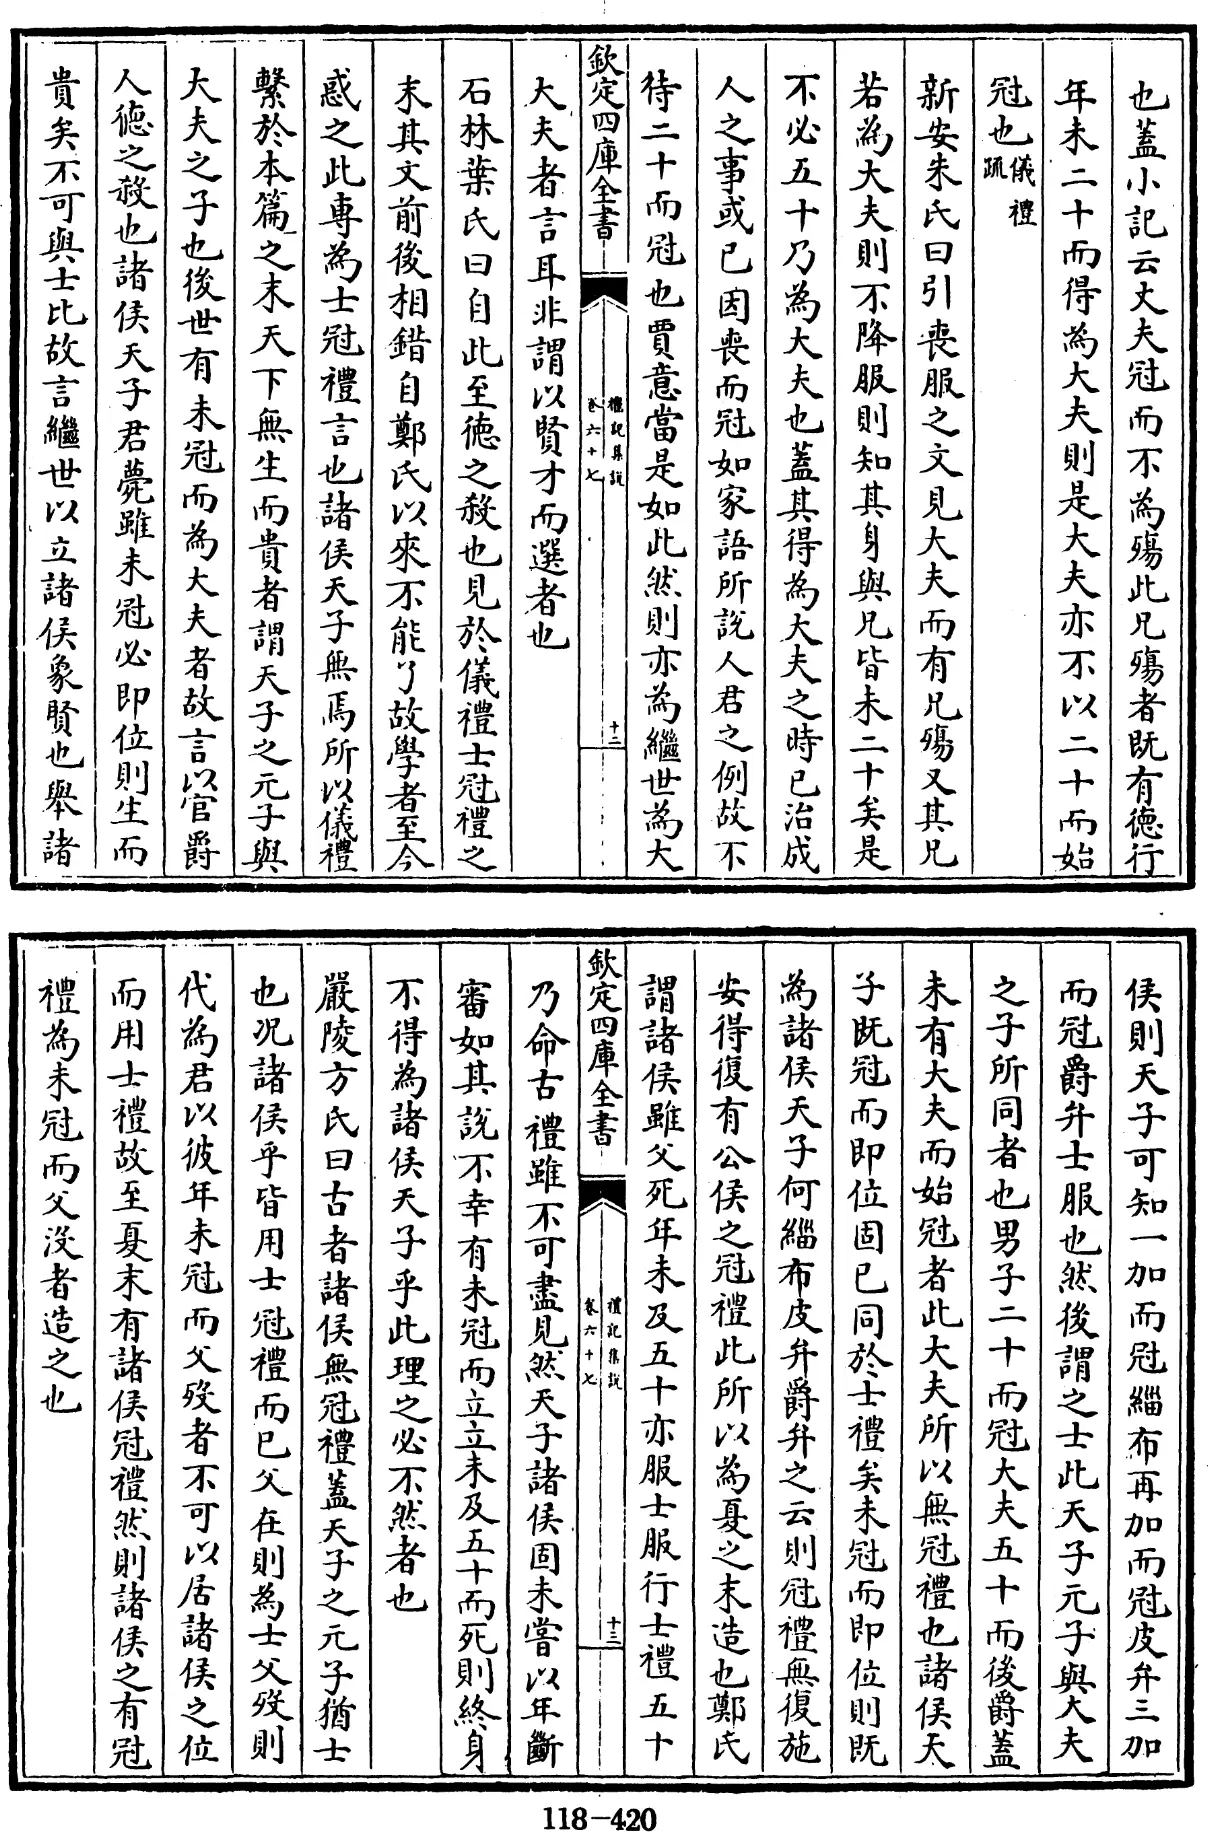 也蓋小記云丈夫冠而不為殤此兄殤者既有德行
年未二十而得為大夫則是大夫亦不以二十而始
冠也儀禮疏
新安朱氏曰引喪服之文見大夫而有兄殤又其兄
若為大夫則不降服則知其身與兄皆未二十矣是
不必五十乃為大夫也蓋其得為大夫之時已治成
人之事或已因喪而冠如家語所説人君之例故不
待二十而冠也賈意當是如此然則亦為繼世為大
欽定四庫全書
禮記集說
卷六十七
十二
大夫者言耳非謂以賢才而選者也
石林葉氏曰自此至德之殺也見於儀禮士冠禮之
末其文前後相錯自鄭氏以來不能了故學者至今
惑之此專為士冠禮言也諸侯天子無焉所以儀禮
繫於本篇之末天下無生而貴者謂天子之元子與
大夫之子也後世有未冠而為大夫者故言以官爵
人德之殺也諸侯天子君薨雖未冠必即位則生而
貴矣不可與士比故言繼世以立諸侯象賢也舉諸
侯則天子可知一加而冠緇布再加而冠皮弁三加
而冠爵弁士服也然後謂之士此天子元子與大夫
之子所同者也男子二十而冠大夫五十而後爵蓋
未有大夫而始冠者此大夫所以無冠禮也諸侯天
子既冠而即位固已同於士禮矣未冠而即位則既
為諸侯天子何緇布皮弁爵弁之云則冠禮無復施
安得復有公侯之冠禮此所以為夏之末造也鄭氏
謂諸侯雖父死年未及五十亦服士服行士禮五十
欽定四庫全書
禮記集說
卷六十七
十三
乃命古禮雖不可盡見然天子諸侯固未嘗以年斷
審如其說不幸有未冠而立立未及五十而死則終身
不得為諸侯天子乎此理之必不然者也
嚴陵方氏曰古者諸侯無冠禮蓋天子之元子猶士
也况諸侯乎皆用士冠禮而已父在則為士父歿則
代為君以彼年未冠而父歿者不可以居諸侯之位
而用士禮故至夏末有諸侯冠禮然則諸侯之有冠
禮為未冠而父沒者造之也
118-420